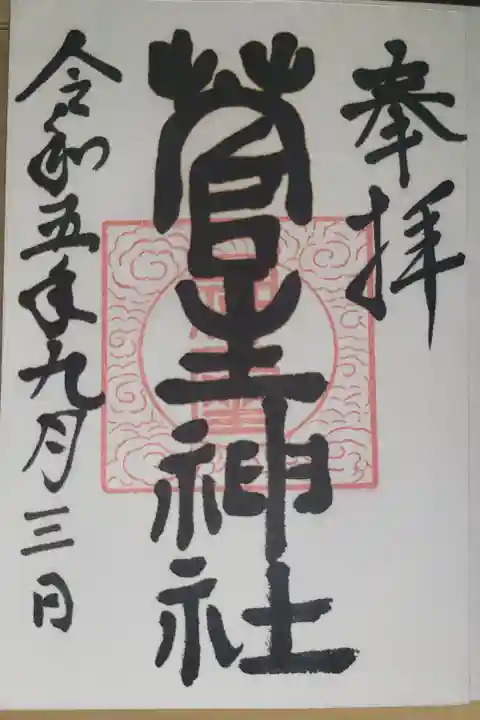 奉拝
菅生神社
令和五年九月三日